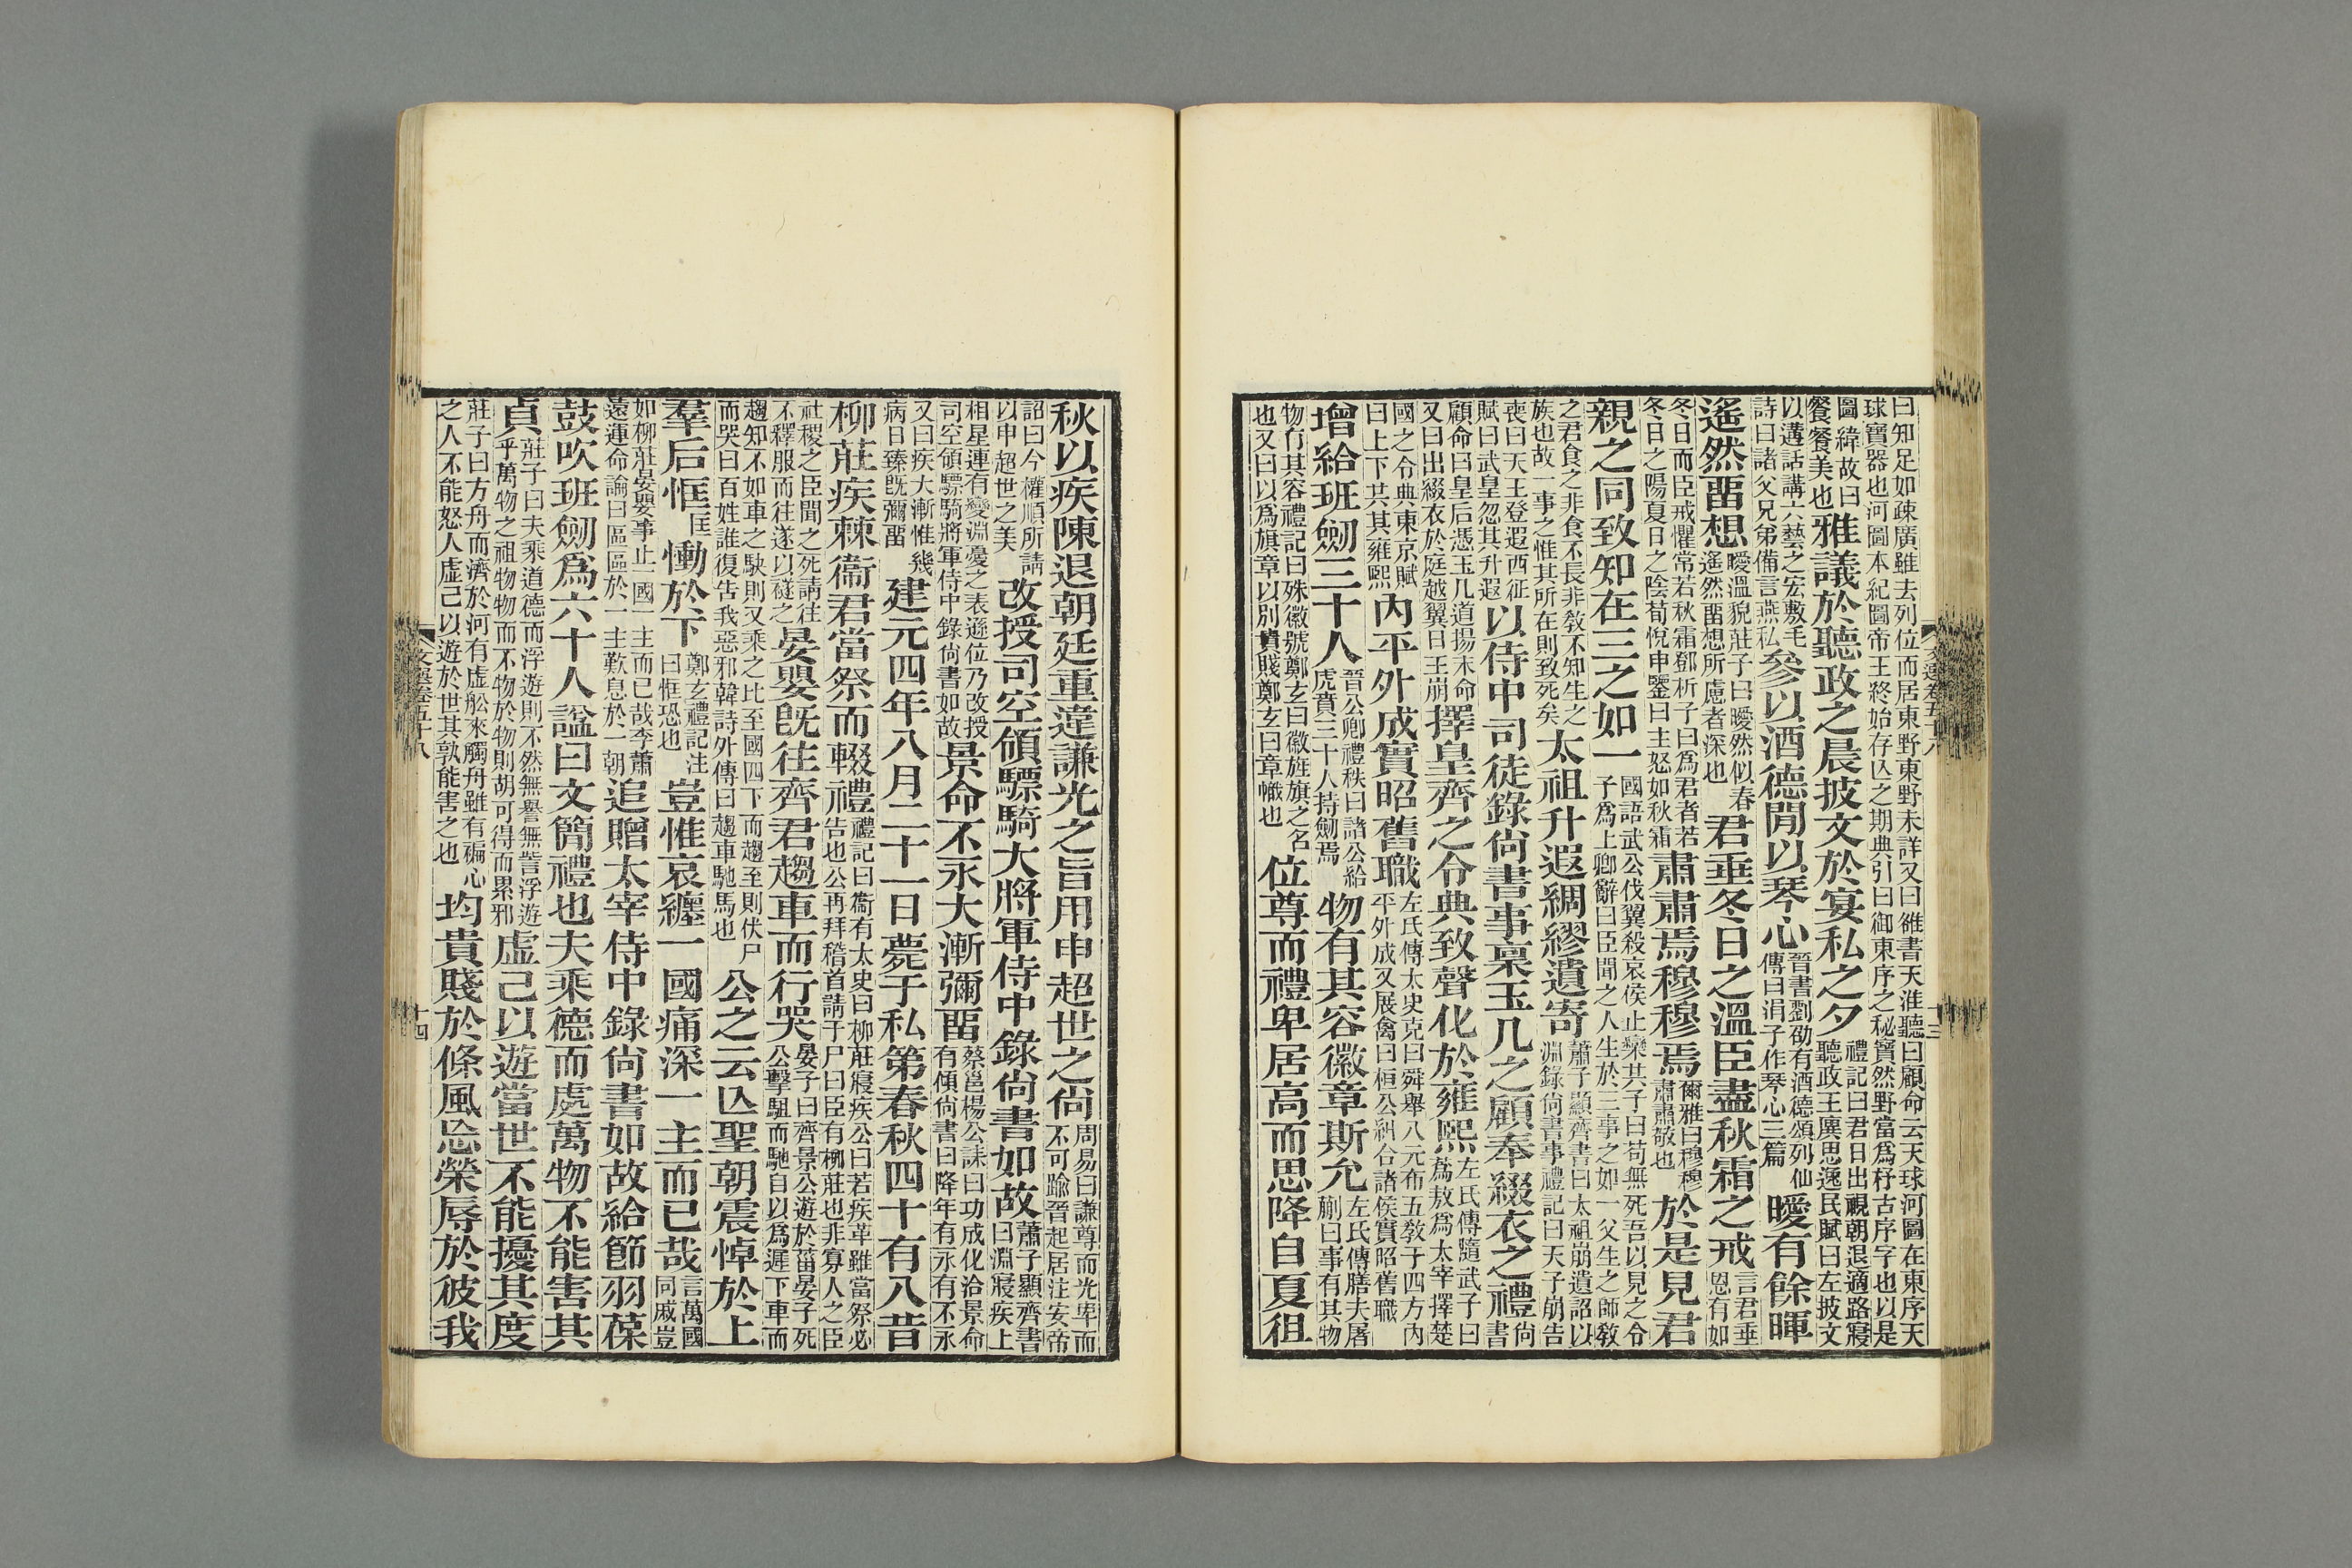 曰知足如疎廣雖去列位而居東野東野未詳又曰雒書天淮聽曰顧命云天球河圖在東序天
球寶器也河圖本紀圖帝王終始存亾之期典引曰御東序之秘寶然野當爲杼古序字也以是
圖緯故曰餐餐美也雅議於聽政之晨披文於宴私之夕禮記曰君日出視朝退適路寢聽政王廙思逸民賦曰左披文
以遘話講六藝之宏敷毛詩曰諸父兄弟備言燕私參以酒德閒以琴心晉書劉劭有酒德頌列仙傳曰涓子作琴心三篇曖有餘暉
遙然畱想曖溫貌莊子曰曖然似春遙然畱想所慮者深也君垂冬日之溫臣盡秋霜之戒言君垂恩有如
冬日而臣戒懼常若秋霜鄧析子曰爲君者若冬日之陽夏日之陰荀悅申鑒曰主怒如秋霜肅肅焉穆穆焉爾雅曰穆穆肅肅敬也於是見君
親之同致知在三之如一國語武公伐翼殺哀侯止欒共子曰苟無死吾以見之令子爲上卿辭曰臣聞之人生於三事之如一父生之師敎
之君食之非食不長非敎不知生之族也故一事之惟其所在則致死矣太祖升遐綢繆遺寄蕭子顯齊書曰太祖崩遺詔以淵錄尙書事禮記曰天子崩告
喪曰天王登遐西征賦曰武皇忽其升遐以侍中司徒錄尙書事稟玉几之顧奉綴衣之禮尙書
顧命曰皇后憑玉几道揚末命又曰出綴衣於庭越翼日王崩擇皇齊之令典致聲化於雍熙左氏傳隨武子曰蔿敖爲太宰擇楚
國之令典東京賦曰上下共其雍熙内平外成實昭舊職左氏傳太史克曰舜舉八元布五敎于四方内平外成又展禽曰桓公糾合諸侯實昭舊職
增給班劒三十人晉公卿禮秩曰諸公給虎賁三十人持劒焉物有其容徽章斯允左氏傳膳夫屠蒯曰事有其物
物有其容禮記曰殊徽號鄭玄曰徽旌旗之名也又曰以爲旗章以別貴賤鄭玄曰章幟也位尊而禮卑居高而思降自夏徂
秋以疾陳退朝廷重違謙光之旨用申超世之尙周易曰謙尊而光卑而不可踰晉起居注安帝
詔曰今權順所請以申超世之美改授司空領驃騎大將軍侍中錄尙書如故蕭子顯齊書曰淵寢疾上
相星連有變淵憂之表遜位乃改授司空領驃騎將軍侍中錄尙書如故景命不永大漸彌畱蔡邕楊公誄曰功成化洽景命有傾尙書曰降年有永有不永
又曰疾大漸惟幾病日臻旣彌畱建元四年八月二十一日薨于私第春秋四十有八昔
柳莊疾棘衞君當祭而輟禮禮記曰衞有太史曰柳莊寢疾公曰若疾革雖當祭必告也公再拜稽首請于尸曰臣有柳莊也非寡人之臣
社稷之臣聞之死請往不釋服而往遂以襚之晏嬰旣往齊君趨車而行哭晏子曰齊景公遊於菑晏子死公擊駔而馳自以爲遲下車而
趨知不如車之駃則又乘之比至國四下而趨至則伏尸而哭曰百姓誰復告我惡邪韓詩外傳曰趨車馳馬也公之云亾聖朝震悼於上
羣后恇匡慟於下鄭玄禮記注曰恇恐也豈惟哀纏一國痛深一主而已哉言萬國同戚豈
如柳莊晏嬰事止一國一主而已哉李蕭遠運命論曰區區於一主歎息於一朝追贈太宰侍中錄尙書如故給節羽葆
鼓吹班劒爲六十人謚曰文簡禮也夫乘德而處萬物不能害其
貞莊子曰夫乘道德而浮遊則不然無譽無訾浮遊乎萬物之祖物物而不物於物則胡可得而累邪虛己以遊當世不能擾其度
莊子曰方舟而濟於河有虛舩來觸舟雖有褊心之人不能怒人虛己以遊於世其孰能害之也均貴賤於條風忘榮辱於彼我
文選卷五十八
十四